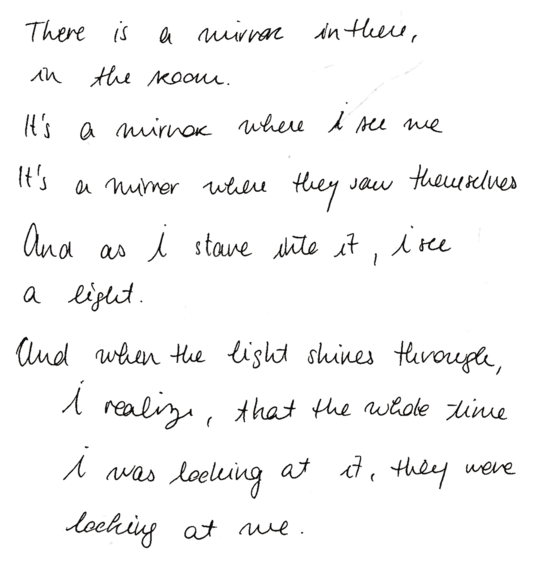 There is a mirror in there,
in the room.
It's a mirror where i see me
It's a mirror where they saw themselves
And as i stare into it, i see
a light.
And when the light shines through,
i realize, that the whole time
i was looking at it, they were
looking at me.